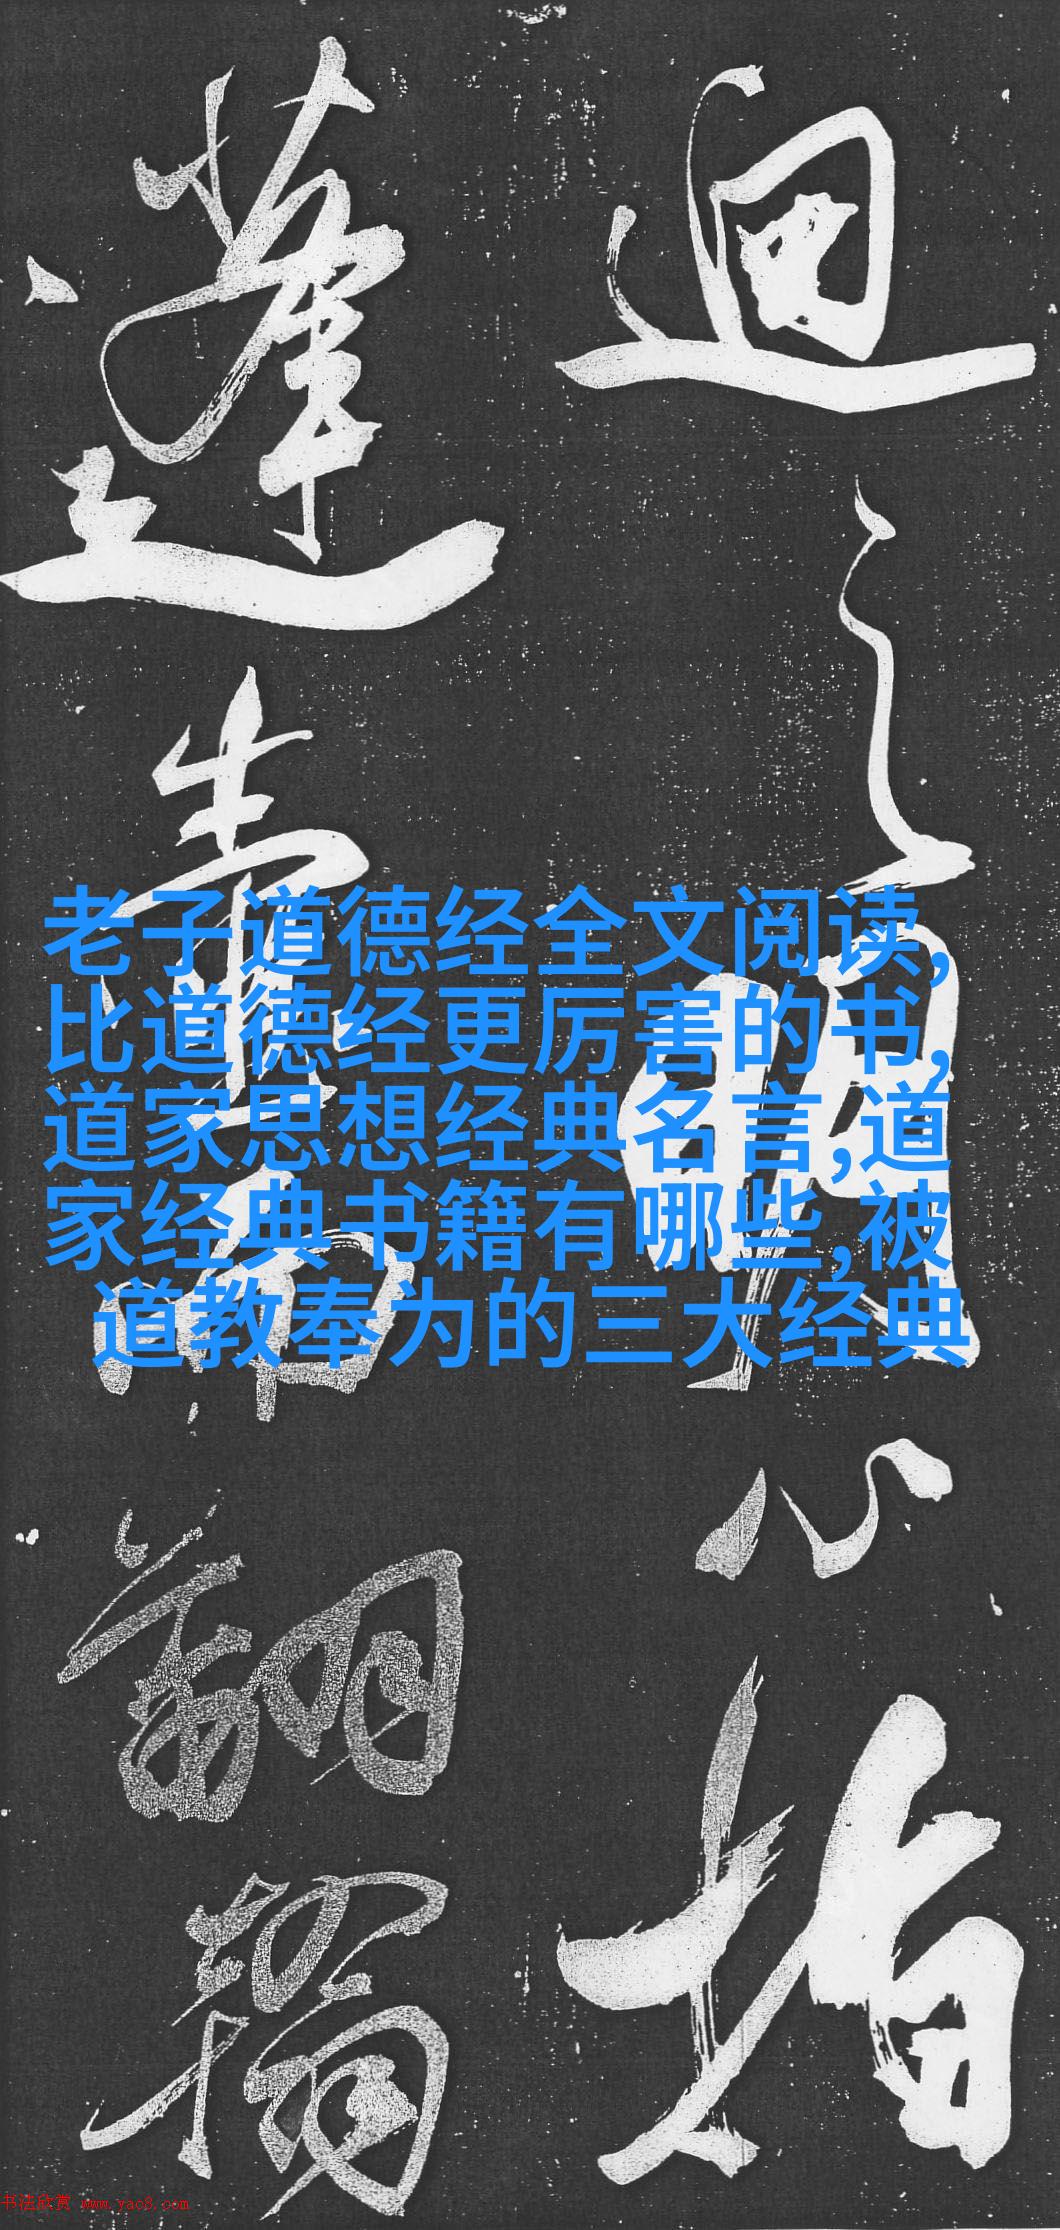 迴
之
心
指
蓬
翻
老子道德经全文阅读,
比道德经更厉害的书,
道家思想经典名言,道
家经典书籍有哪些,被
道教奉为的三大经典
书法欣赏 www.yac8.com